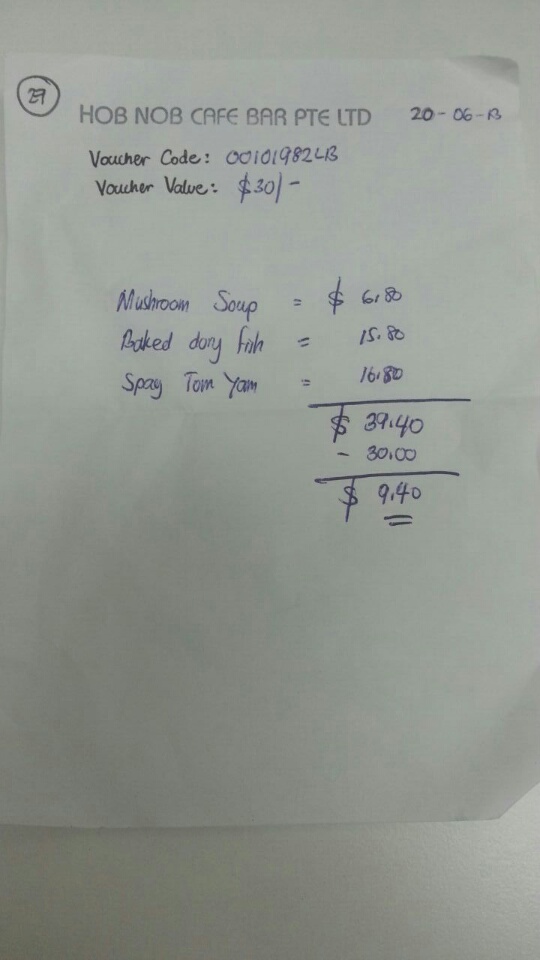 27
HOB NOB CAFE BAR PTE LTD 20-06-13
Voucher Code: 001019824B
Voucher Value: $30/-
Mushroom Soup = $ 6.80
Baked dory fish = 15.80
Spag Tom Yam = 16.80
$ 39.40
- 30.00
$ 9.40